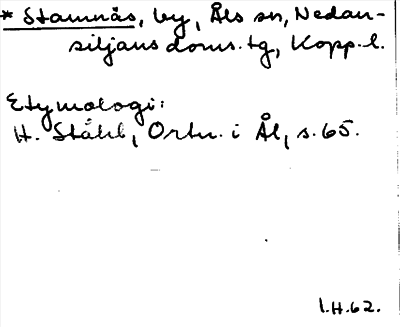 * Stamnäs, by, Åls sn, Nedan-
siljans doms. tg, Kopp. l.
Etymologi:
H. Ståhl, Ortn. i Ål, s. 65.
I.H.62.